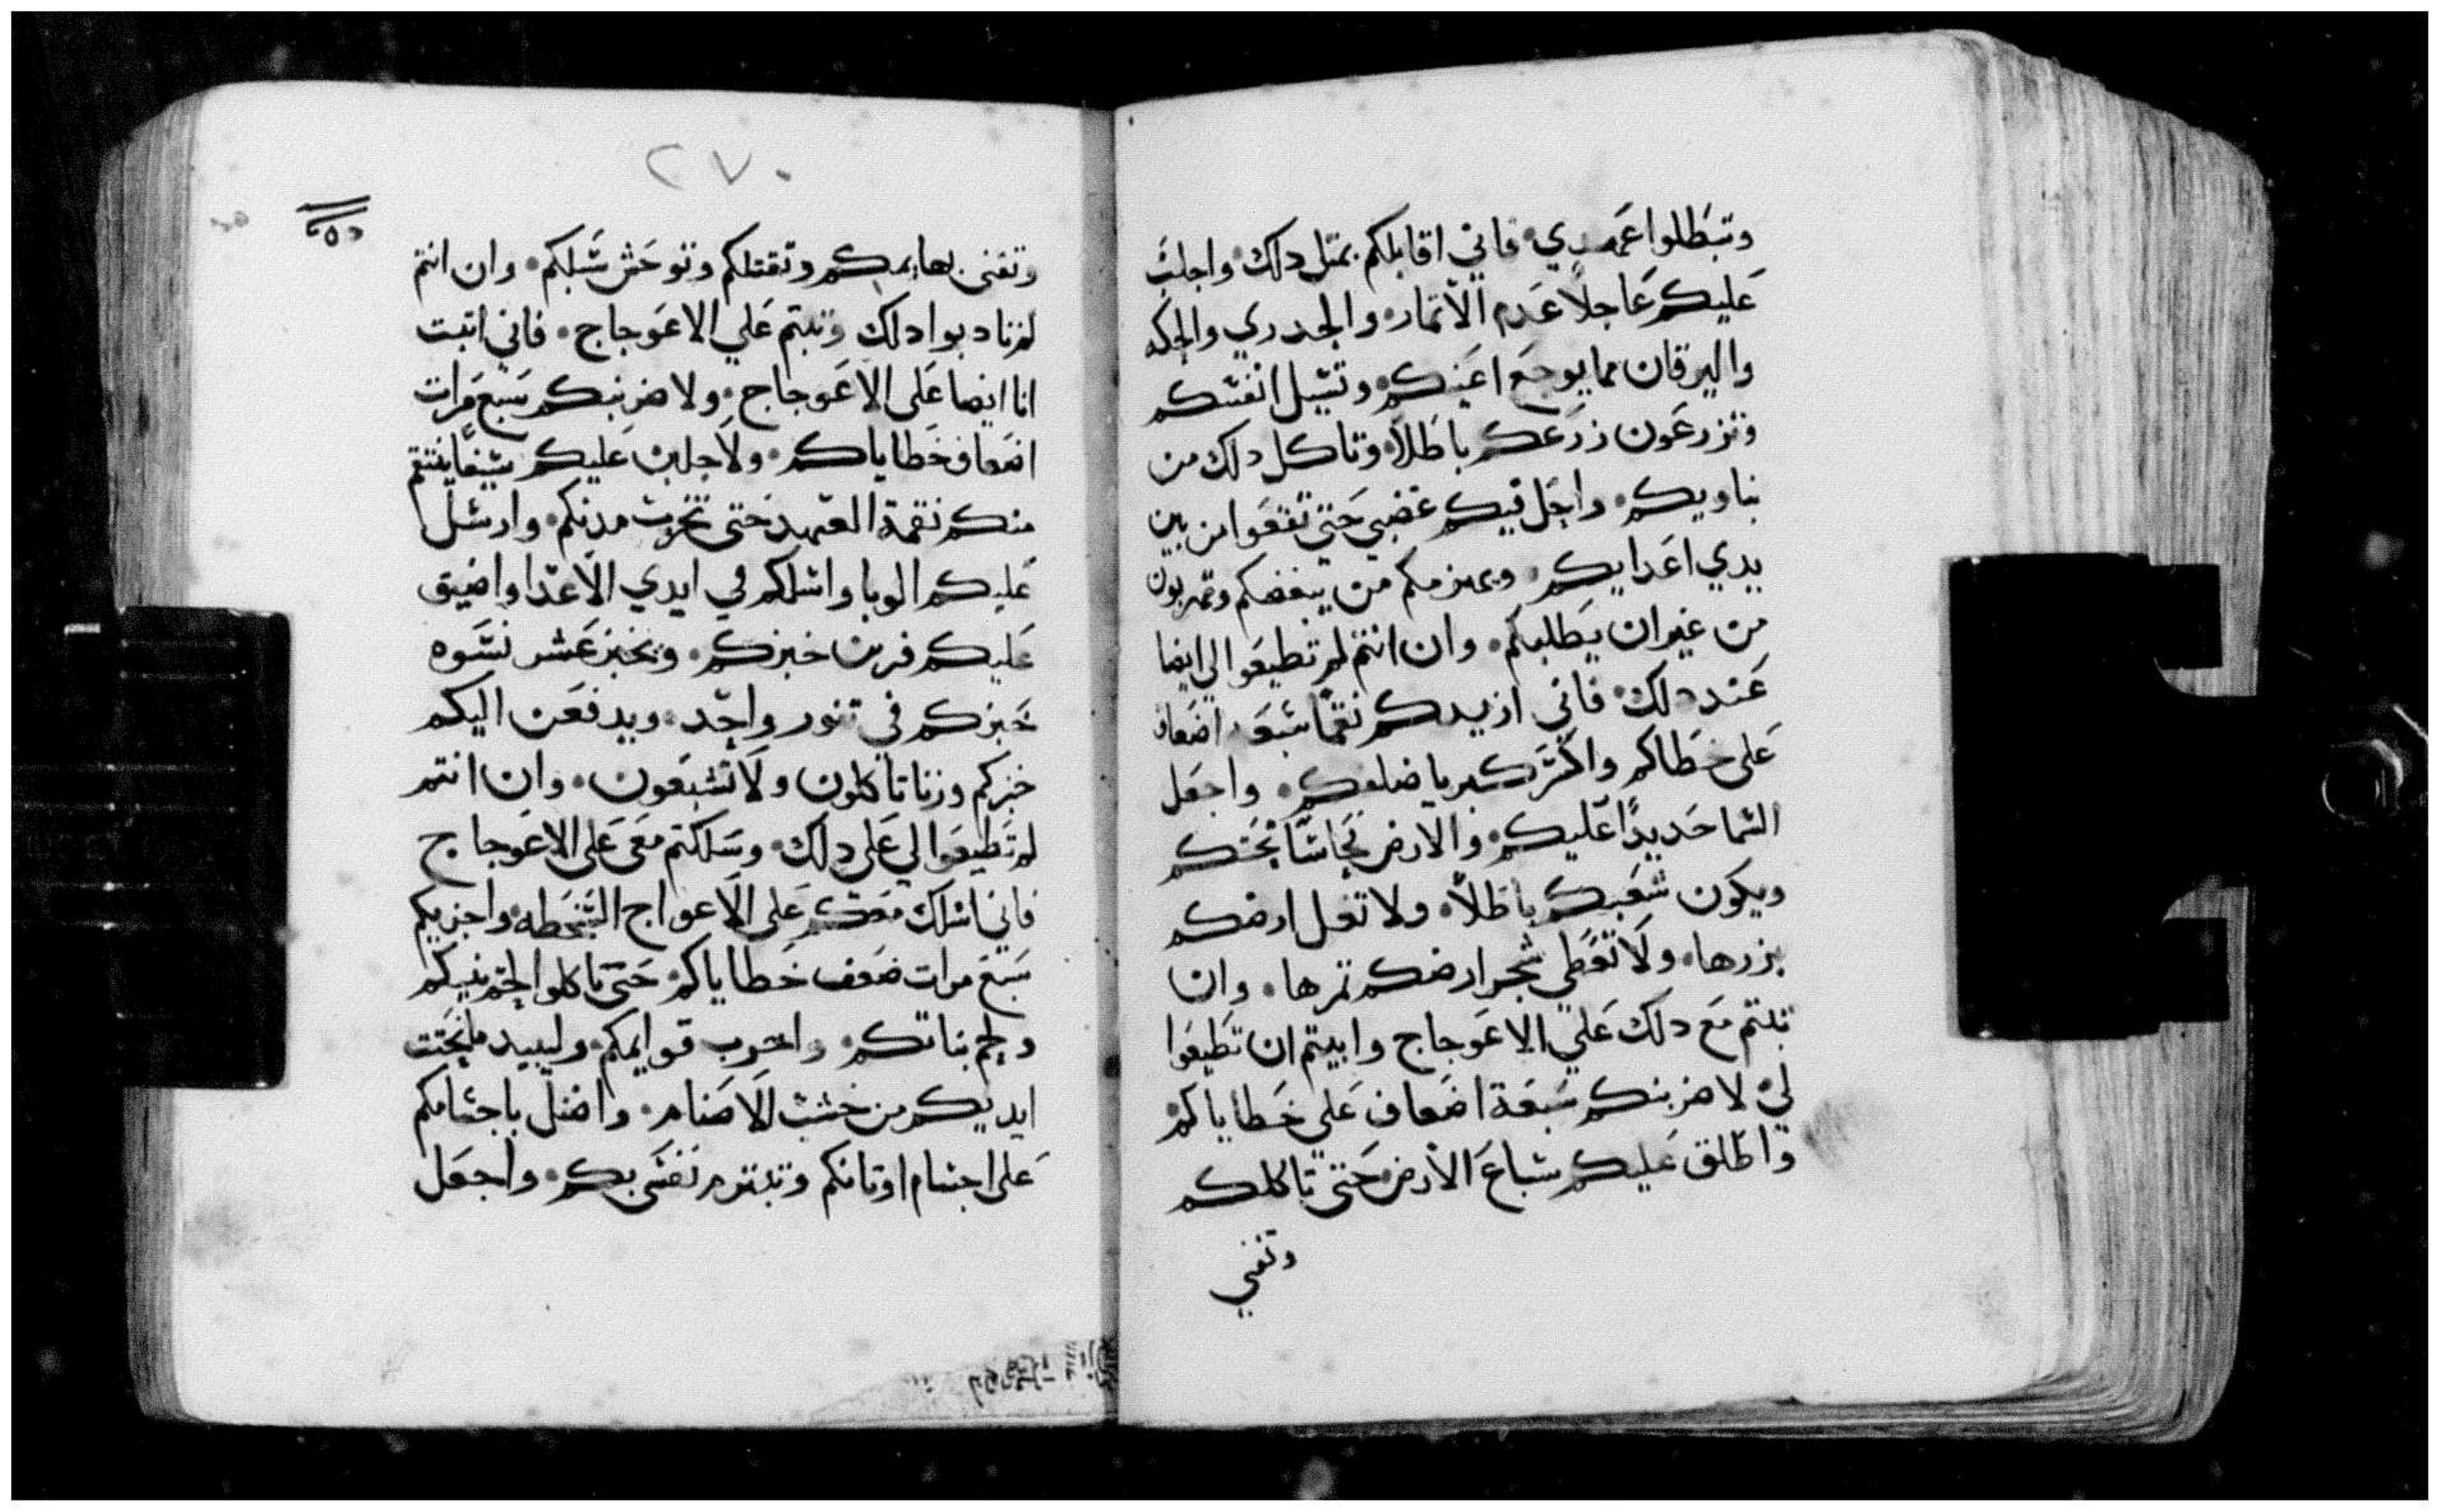 وتبطلوا عهدي فاني اقابلكم بمتل دلك واجلب
عليكم عاجلاً عدم الأتمار والجدري والحكه
واليرقان مما يوجع اعينكم وتسيل انفسكم
وتزرعون زرعكم باطلاً وتاكل دلك من
يناويكم واحل فيكم غضبي حتي تقعوا من بين
يدي اعدايكم ويهزمكم من يبغضكم وتهربون
من غير ان يطلبكم وان انتم لم تطيعوا لي ايضا
عند دلك فاني ازيدكم نقما سبعه اضعاف
علي خطاكم واكسر كبريا ضلعكم واجعل
السما حديدًا عليكم والارض نحاسًا تحتكم
ويكون تعبكم باطلاً ولا تغل ارضكم
بزرها ولا تعطي شجر ارضكم تمرها وان
تبتم مع دلك علي الاعوجاج وابيتم ان تطيعوا
لي لاضربنكم سبعة اضعاف علي خطاياكم
واطلق عليكم سباع الأرض حتي تاكلكم
وتفني
٢٧٠
وتفني بهايمكم وتقتلكم وتوحش سبلكم وان انتم
لم تادبوا دلك وتبتم علي الاعوجاج فاني اتبت
انا ايضا علي الاعوجاج ولاضربنكم سبع مرات
اضعاف خطاياكم ولاجلبن عليكم سيفا ينتقم
منكم نقمة العهد حتي تخرب مدنكم وارسل
عليكم الوبا واسلمكم في ايدي الأعدا واضيق
عليكم خبزكم ويخبز عشر نسوه
خبزكم في تنور واحد ويدفعن اليكم
خبزكم وزنا تاكلون ولا تشبعون وان انتم
لم تطيعوا لي علي دلك وسلكتم معي علي الاعوجاج
فاني اسلك معكم علي الاعواج السخطه واجزيكم
سبع مرات ضعف خطاياكم حتي تاكلوا لحم بنيكم
ولحم بناتكم واخرب قوايمكم وليبيد ما نحتت
ايديكم من خشب الاصنام واضل باجسامكم
علي اجسام اوتانكم وتبترم نفسي بكم واجعل